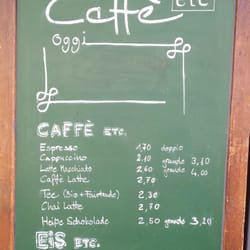 Caffè ETC
Oggi
CAFFÈ ETC.
Espresso 1,70 doppio
Cappuccino 2.10 grande 3,10
Latte Macchiato 2,60 grande 4.00
Caffè Latte 2,70
Tee (Bio+Fairtrade) 2,30
Chai Latte 2,70
Heiße Schokolade 2,50 grande 3,20
EiS ETC.